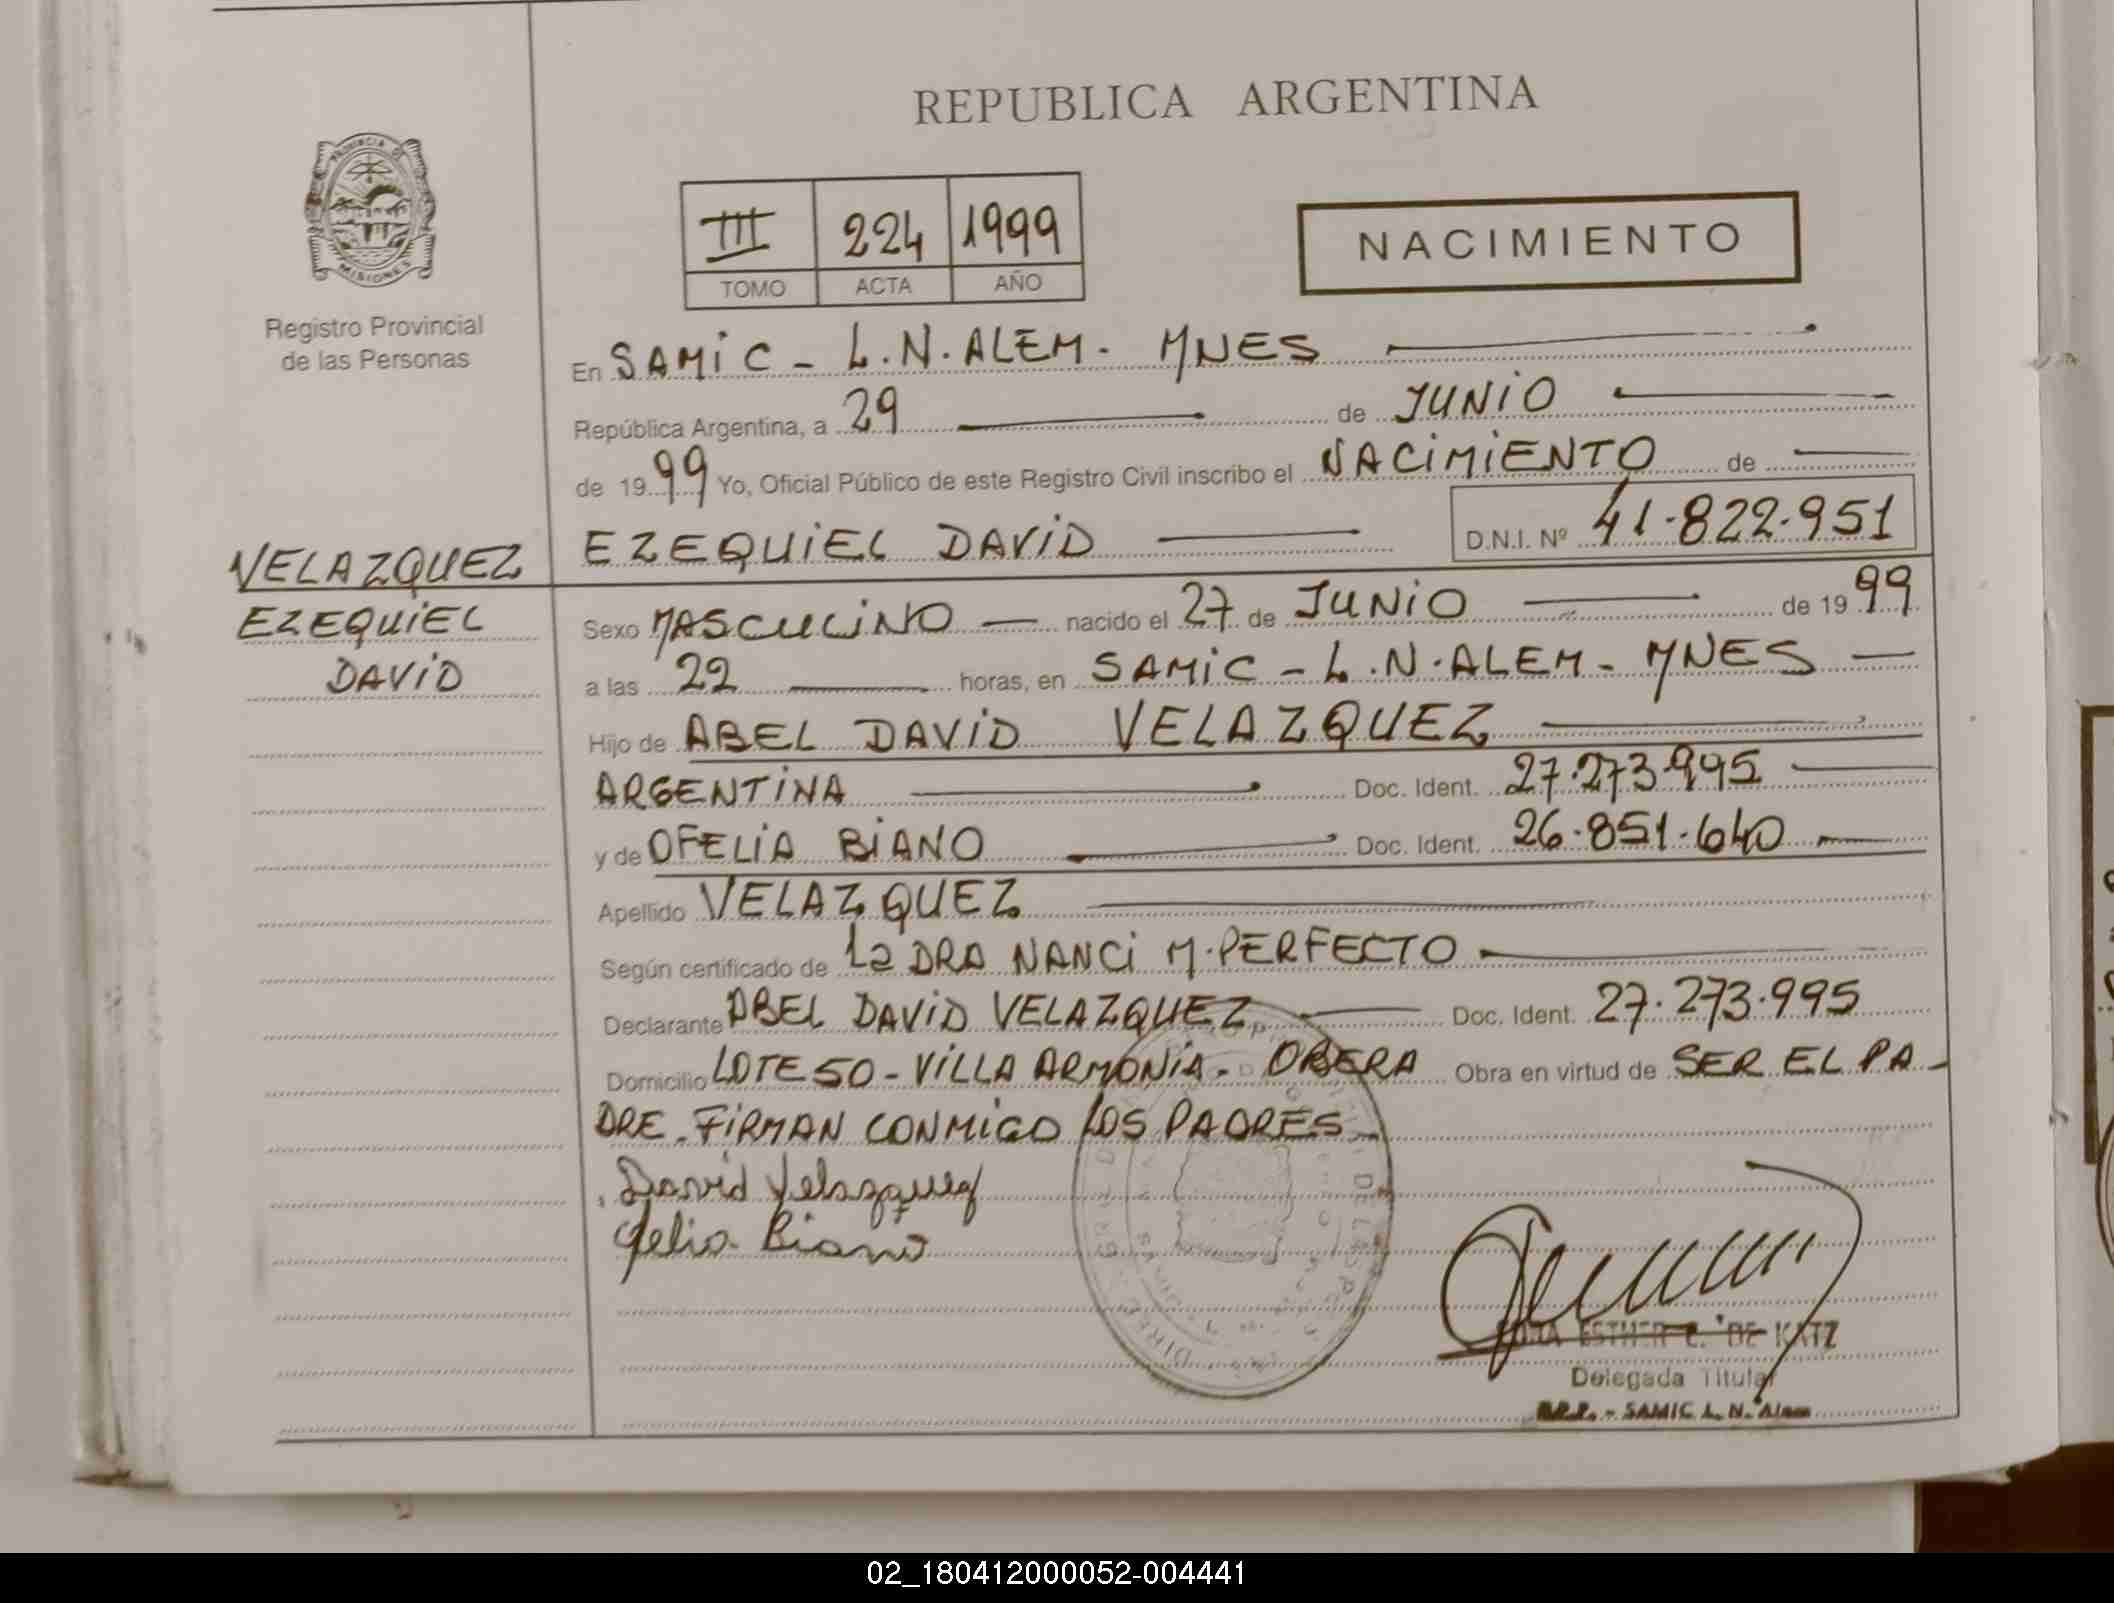 REPUBLICA ARGENTINA
PROVINCIA DE
MISIONES
Registro Provincial
de las Personas
III 224 1999
TOMO ACTA AÑO
NACIMIENTO
En SAMiC - L.N.ALEM - MNES
República Argentina, a 29 de JUNiO
de 1999 Yo, Oficial Público de este Registro Civil inscribo el NACiMiENTO de
VELAZQUEZ
EZEQUiEL
DAViD
EZEQUiEL DAViD D.N.I. Nº 41.822.951
Sexo MASCULiNO nacido el 27 de JUNiO de 1999
a las 22 horas, en SAMiC - L.N.ALEM - MNES
Hijo de ABEL DAViD VELAZQUEZ
ARGENTiNA Doc. Ident. 27.273.995
y de OFELiA BiANO Doc. Ident. 26.851.640
Apellido VELAZQUEZ
Según certificado de la DRA NANCi M.PERFECTO
Declarante ABEL DAViD VELAZQUEZ Doc. Ident. 27.273.995
Domicilio LOTE 50 - ViLLA ARMONiA - OBERA Obra en virtud de SER EL PA-
DRE. FiRMAN CONMiGO LOS PADRES
David Velazquez
Ofelia Biano
ESTHER E. DE KATZ
Delegada Titular
R.P.P. - SAMIC L. N. Alem
02_180412000052-004441